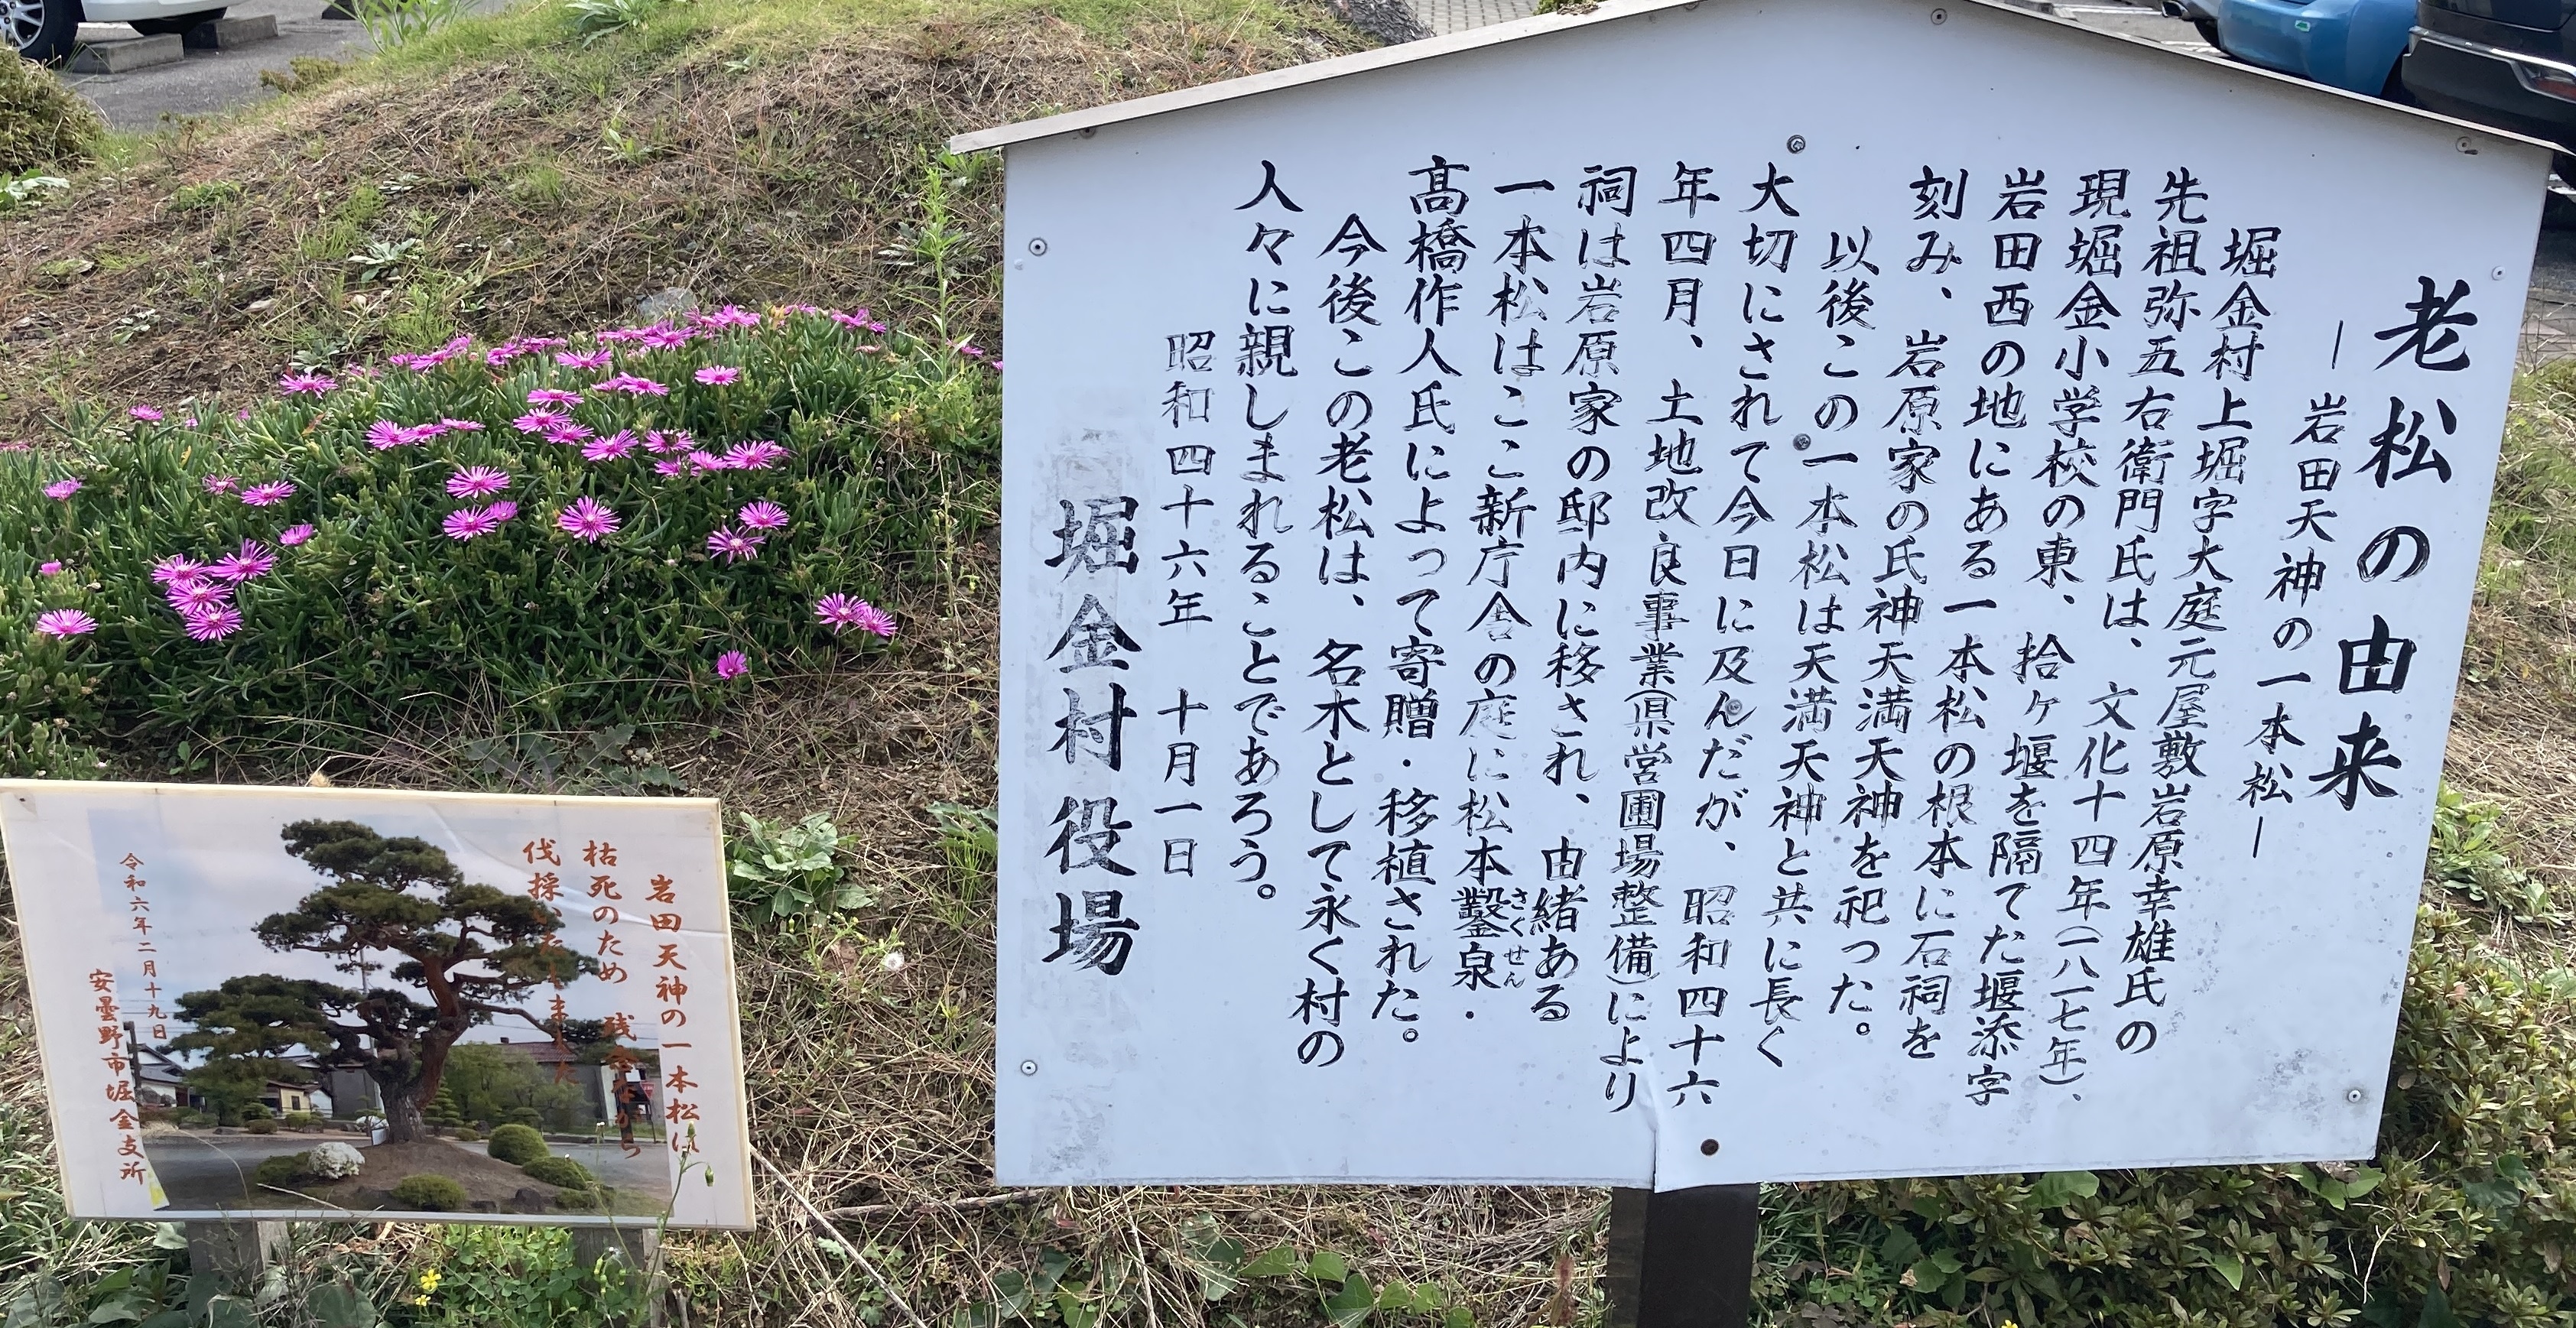 老松の由来
―岩田天神の一本松―
堀金村上堀字大庭元屋敷岩原幸雄氏の
先祖弥五右衛門氏は、文化十四年(一八一七年)、
現堀金小学校の東、拾ヶ堰を隔てた堰添字
岩田西の地にある一本松の根本に石祠を
刻み、岩原家の氏神天満天神を祀った。
以後この一本松は天満天神と共に長く
大切にされて今日に及んだが、昭和四十六
年四月、土地改良事業(県営圃場整備)により
祠は岩原家の邸内に移され、由緒ある
一本松はここ新庁舎の庭に松本鑿泉・
さくせん
髙橋作人氏によって寄贈・移植された。
今後この老松は、名木として永く村の
人々に親しまれることであろう。
昭和四十六年 十月一日
堀金村役場
岩田天神の一本松は
枯死のため 残念ながら
伐採いたしました
令和六年二月十九日
安曇野市堀金支所